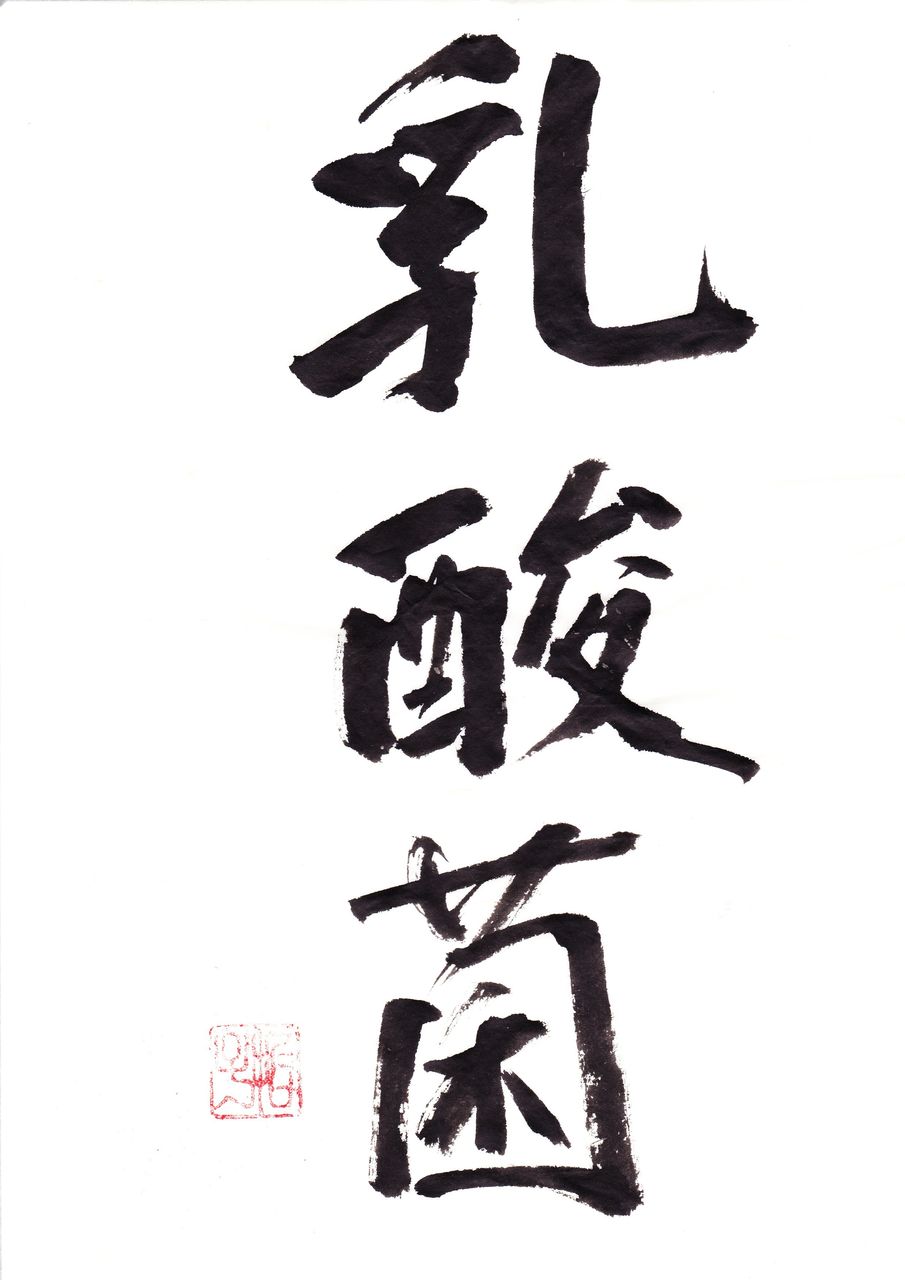 乳酸菌